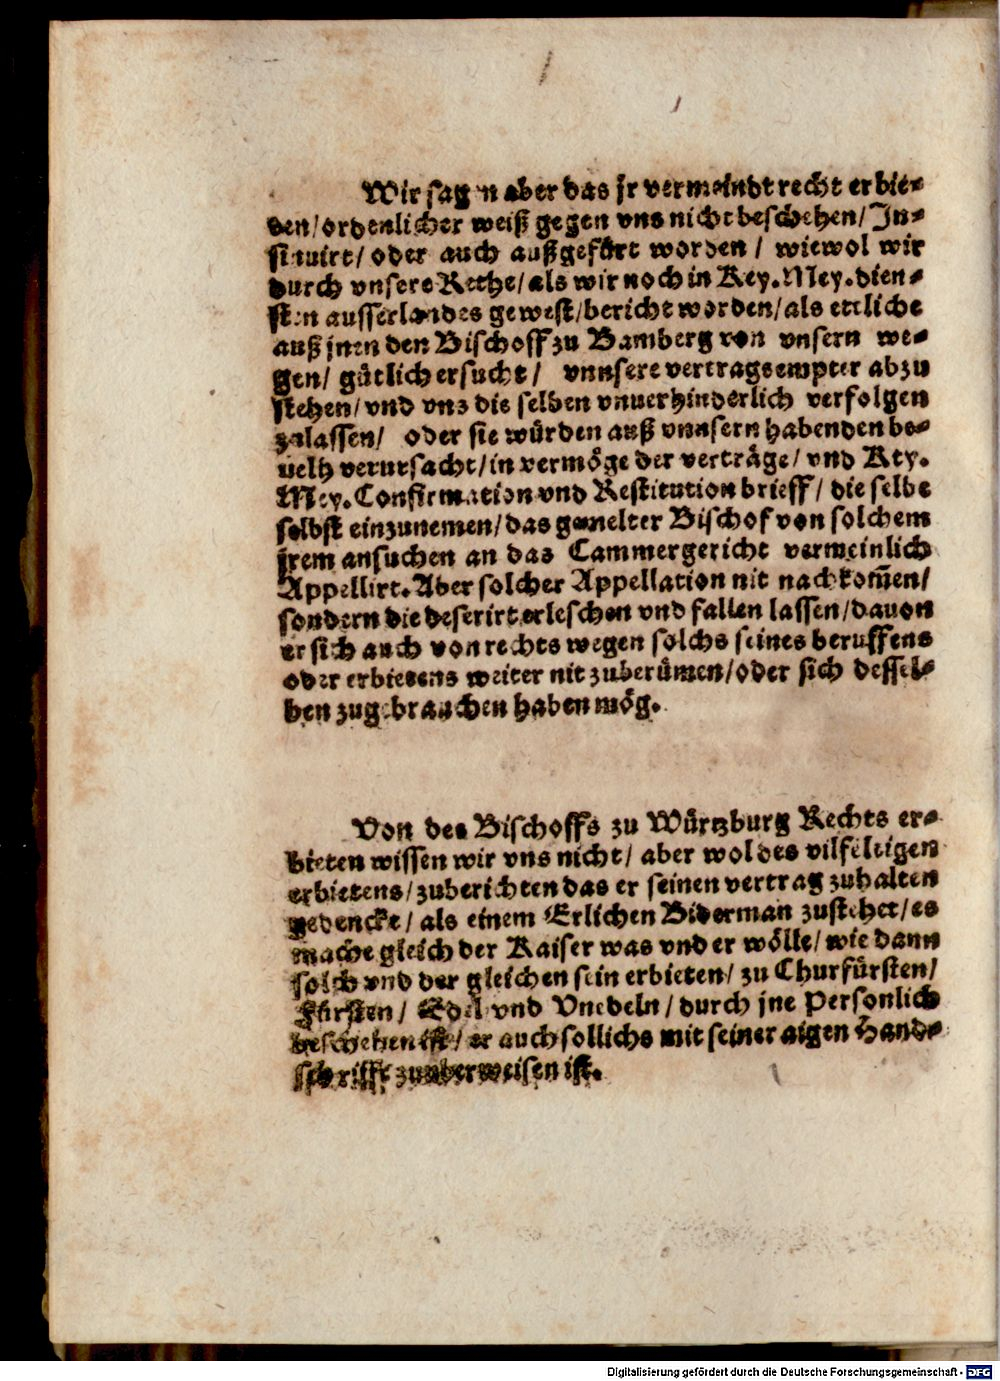 Wir sagen aber das jr vermeindt recht erbie-
den/ ordenlicher weiß gegen vns nicht beschehen/ In-
stituirt/ oder auch außgefürt worden / wiewol wir
durch vnsere Rethe/ als wir noch in Key. Mey. dien-
sten ausserlandes gewest/ bericht worden/ als ettliche
auß jnen den Bischoff zu Bamberg von vnsern we-
gen/ gütlich ersucht / vnnsere vertragsempter abzu
stehen/ vnd vns die selben vnuerhinderlich verfolgen
zulassen/ oder sie würden auß vnnsern habenden be-
uelh verursacht/ in vermöge der verträge/ vnd Key.
Mey. Confirmation vnd Restitution brieff/ die selbe
selbst einzunemen/ das gemelter Bischof von solchem
jrem ansuchen an das Cammergericht vermeinlich
Appellirt. Aber solcher Appellation nit nachkom̃en/
sondern die deserirt erleschen vnd fallen lassen/ dauon
er sich auch von rechts wegen solchs seines beruffens
oder erbietens weiter nit zuberümen/ oder sich dessel-
ben zugebrauchen haben mög.
Von des Bischoffs zu Würtzburg Rechts er-
bieten wissen wir vns nicht/ aber wol des vilfeltigen
erbietens/ zuberichten das er seinen vertrag zuhalten
gedencke/ als einem Erlichen Biderman zustehet/ es
mache gleich der Kaiser was vnd er wölle/ wie dann
solch vnd der gleichen sein erbieten/ zu Churfürsten/
Fürsten/ Edel vnd Vnedeln/ durch jne Personlich
beschehen ist/ er auch sollichs mit seiner aigen Hand-
schrifft zuuberweisen ist.
Digitalisierung gefördert durch die Deutsche Forschungsgemeinschaft - DFG